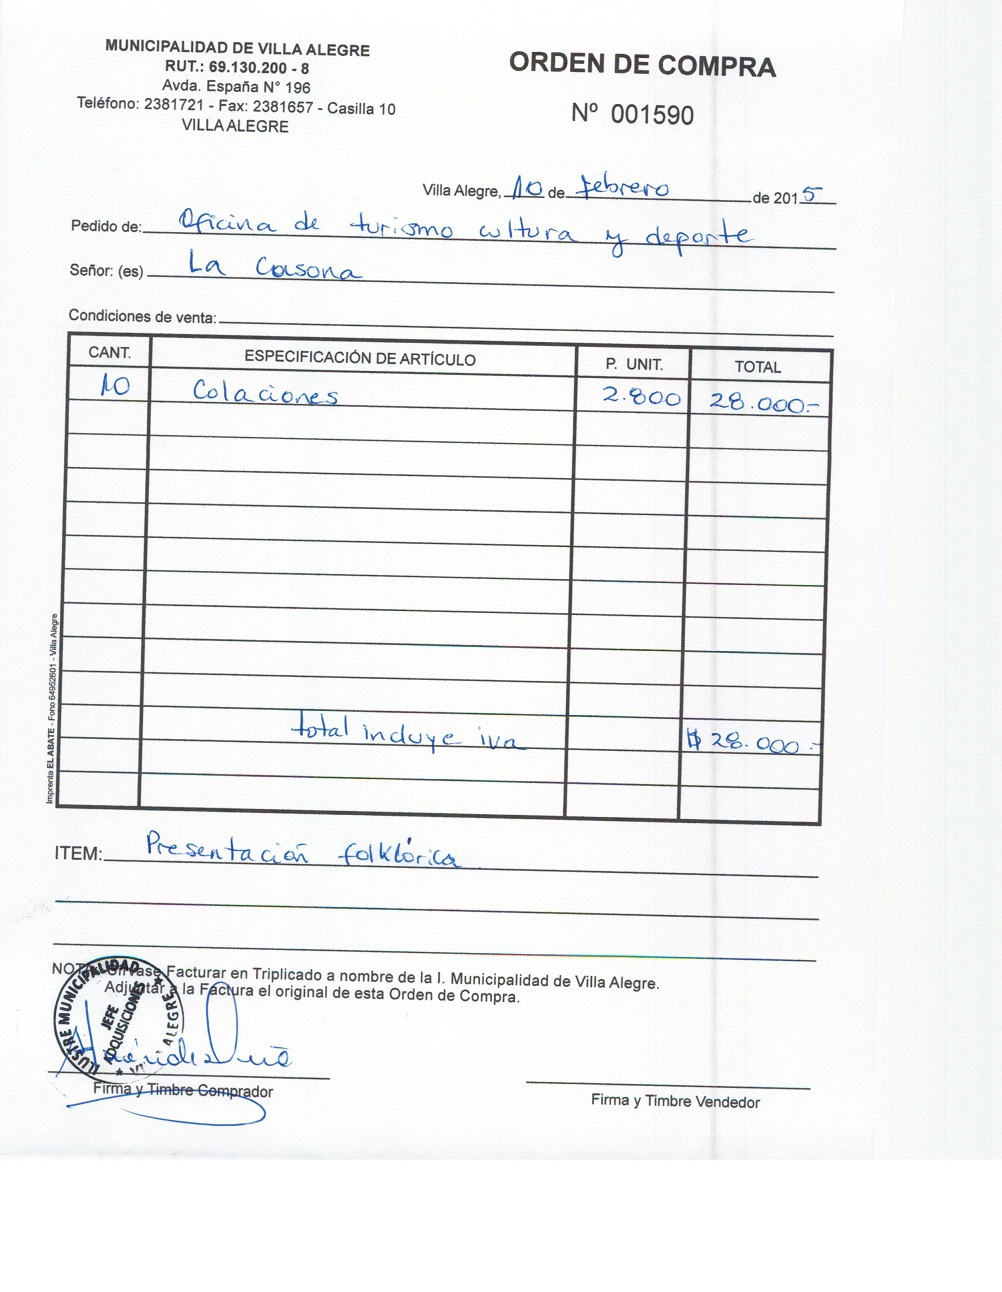 MUNICIPALIDAD DE VILLA ALEGRE
RUT.: 69.130.200 - 8
Avda. España N° 196
Teléfono: 2381721 - Fax: 2381657 - Casilla 10
VILLA ALEGRE
ORDEN DE COMPRA
Nº 001590
Villa Alegre, 10 de febrero de 2015
Pedido de: Oficina de turismo cultura y deporte
Señor: (es) La Casona
Condiciones de venta:
CANT. ESPECIFICACIÓN DE ARTÍCULO P. UNIT. TOTAL
10 Colaciones 2.800 28.000.-
total incluye iva $ 28.000.-
Imprenta EL ABATE - Fono 64952601 - Villa Alegre
ITEM: Presentación folklórica
Facturar en Triplicado a nombre de la I. Municipalidad de Villa Alegre.
Adjuntar a la Factura el original de esta Orden de Compra.
ILUSTRE MUNICIPALIDAD
JEFE
ADQUISICIONES
ALEGRE
Firma y Timbre Comprador
Firma y Timbre Vendedor